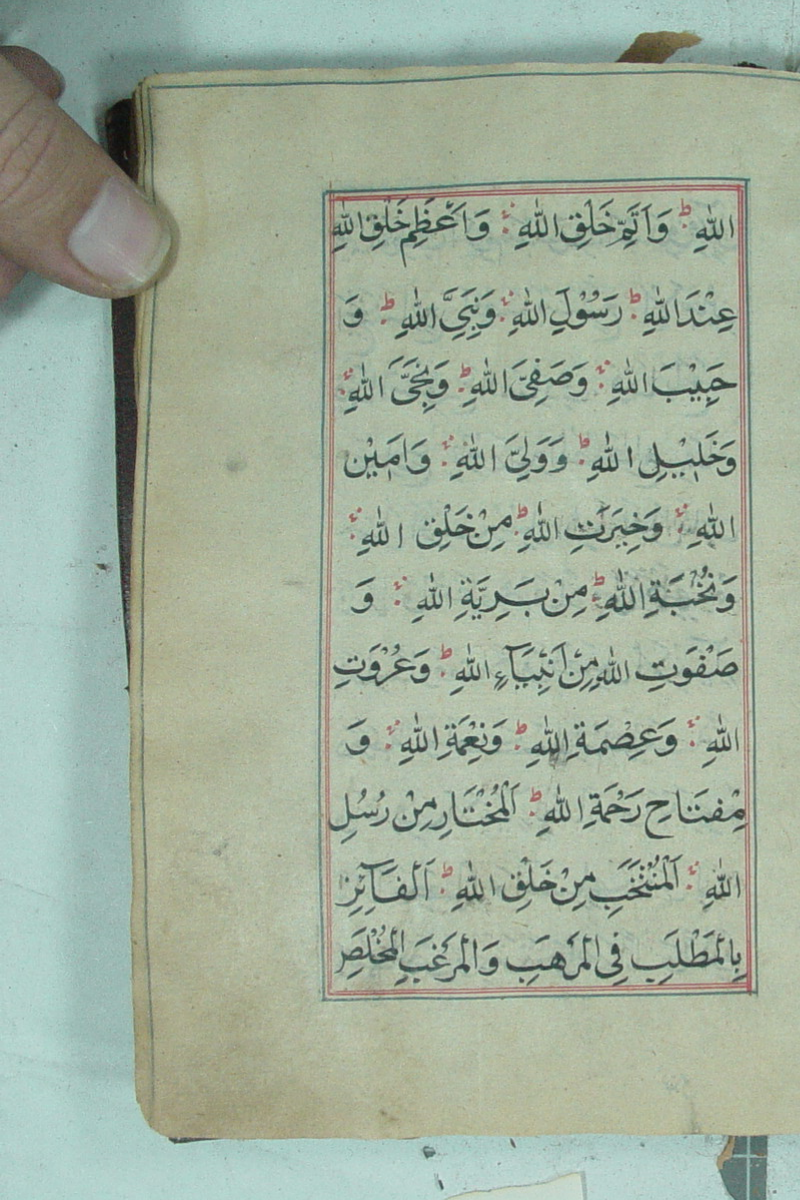 اللهِ ؕ وَاَتَمِّ خَلْقِ اللهِ وَاَعْظَمِ خَلْقِ اللهِ
عِنْدَ اللهِ ؕ رَسُوْلِ اللهِ وَنَبِيَّ اللهِ ؕ وَ
حَبِيْبَ اللهِ وَصَفِيَّ اللهِ ؕ وَنَجِيَّ اللهِ
وَخَلِيْلِ اللهِ ؕ وَوَلِيَّ اللهِ وَاَمِيْنِ
اللهِ وَخِيَرَتِ اللهِ ؕ مِنْ خَلْقِ اللهِ
وَنُخْبَةِ اللهِ ؕ مِنْ بَرِيَّةِ اللهِ وَ
صَفْوَتِ اللهِ مِنْ اَنْبِيَآءِ اللهِ ؕ وَعُرْوَتِ
اللهِ وَعِصْمَةِ اللهِ ؕ وَنِعْمَةِ اللهِ وَ
مِفْتَاحِ رَحْمَةِ اللهِ ؕ اَلْمُخْتَارِ مِنْ رُسُلِ
اللهِ اَلْمُنْتَخَبِ مِنْ خَلْقِ اللهِ ؕ اَلْفَآئِزِ
بِالْمَطْلَبِ فِى الْمَرْهَبِ وَالْمَرْغَبِ الْمُخْلَصِ